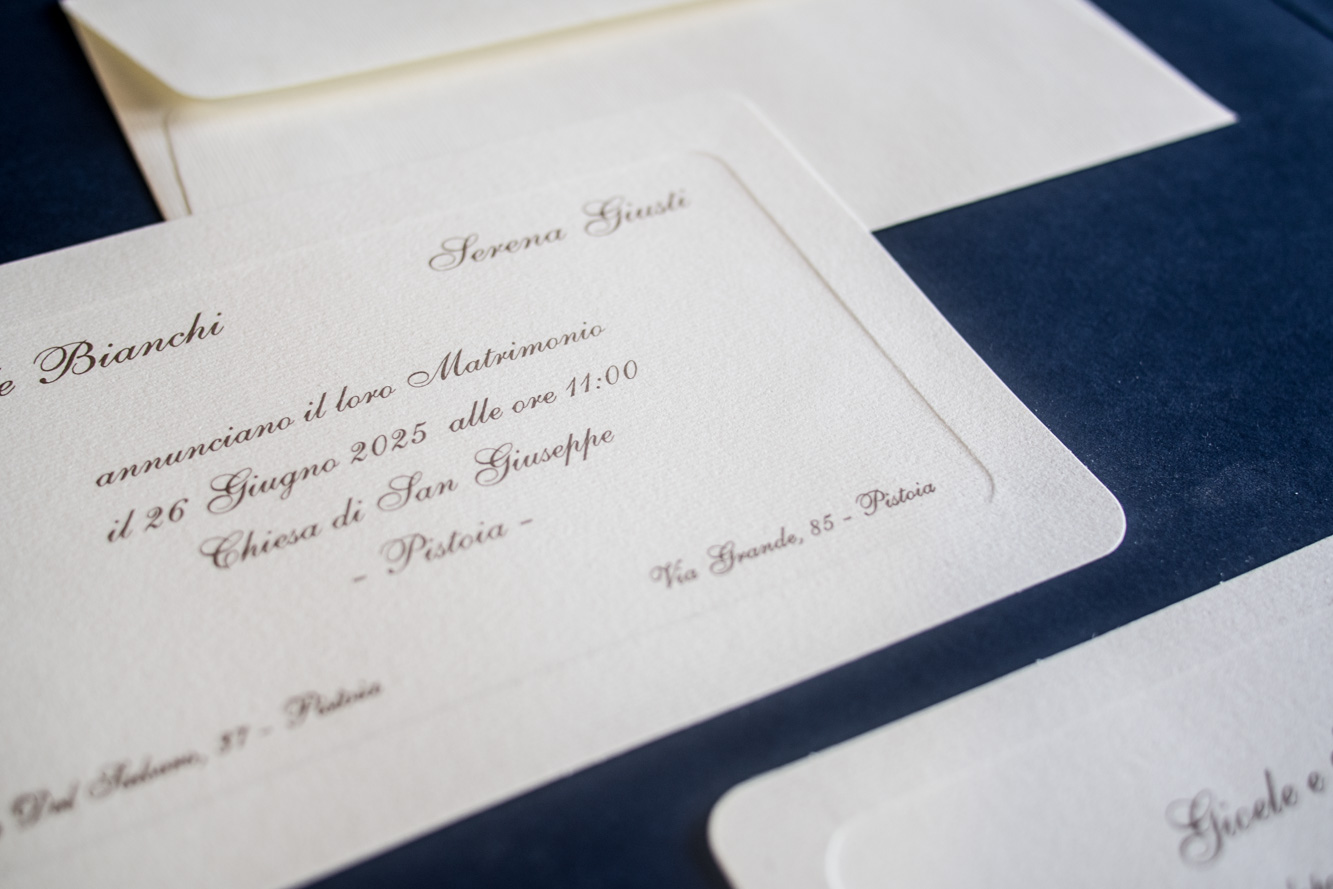 Serena Giusti
e Bianchi
annunciano il loro Matrimonio
il 26 Giugno 2025 alle ore 11:00
Chiesa di San Giuseppe
- Pistoia -
Via Grande, 85 - Pistoia
Dal 37 - Pistoia
Gicele e